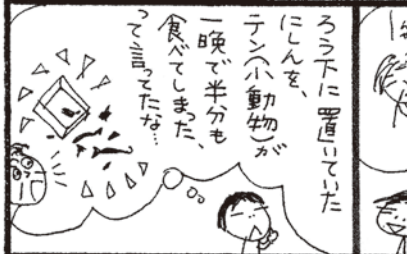 ろう下に置いていた
にしんを、
テン(小動物)が
一晩で半分も
食べてしまった、
って言ってたな…